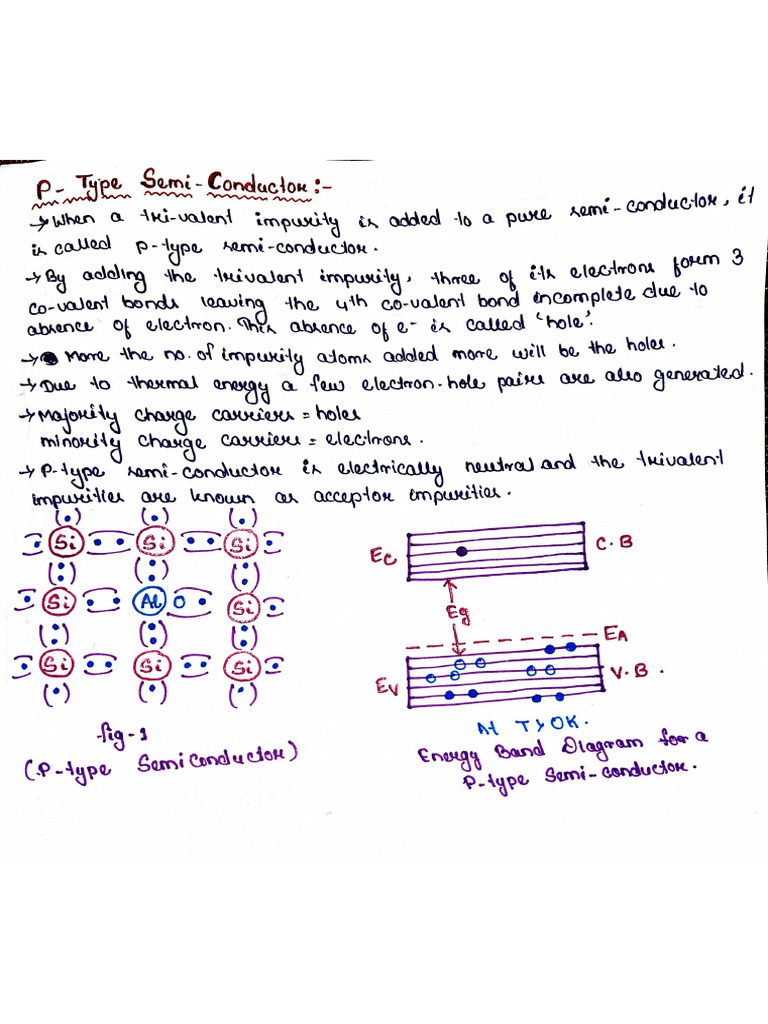 P- Type Semi-Conductor:-
→ When a tri-valent impurity is added to a pure semi-conductor, it
is called p-type semi-conductor.
→ By adding the trivalent impurity, three of its electrons form 3
co-valent bonds leaving the 4th co-valent bond incomplete due to
absence of electron. This absence of e- is called 'hole'.
→ More the no. of impurity atoms added more will be the holes.
→ Due to thermal energy a few electron-hole pairs are also generated.
→ Majority charge carriers = holes
minority charge carriers = electrons.
→ P-type semi-conductor is electrically neutral and the trivalent
impurities are known as acceptor impurities.
Si Si Si
Si Al Si
Si Si Si
fig-1
(P-type Semiconductor)
Ec
C.B
Eg
EA
Ev
V.B.
At T > 0K.
Energy Band Diagram for a
P-type Semi-conductor.